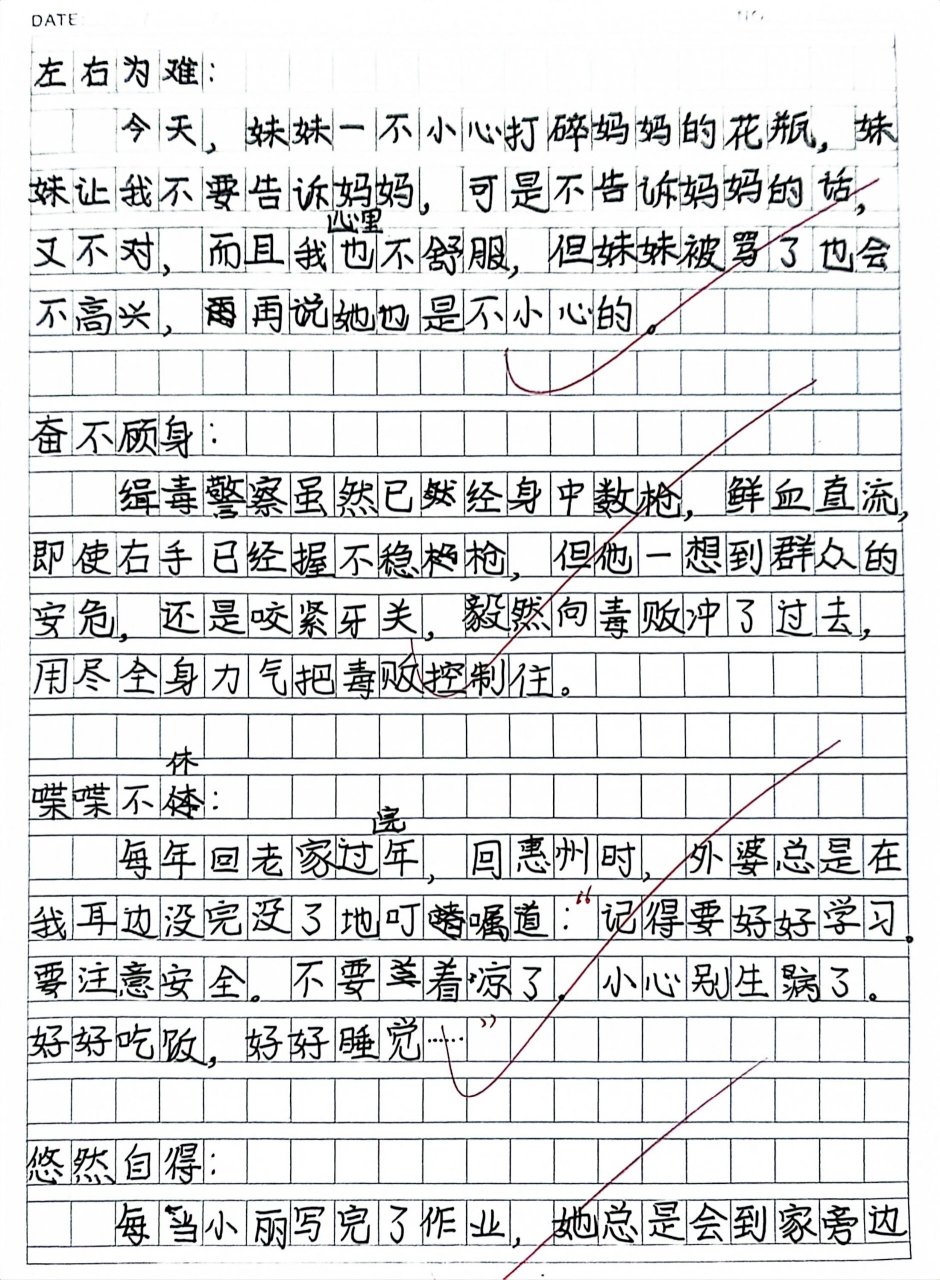 DATE:
左右为难：
今天，妹妹一不小心打碎妈妈的花瓶，妹
妹让我不要告诉妈妈，可是不告诉妈妈的话，
心里
又不对，而且我也不舒服，但妹妹被骂了也会
不高兴，再说她也是不小心的。
奋不顾身：
缉毒警察虽然已然经身中数枪，鲜血直流，
即使右手已经握不稳枪，但他一想到群众的
安危，还是咬紧牙关，毅然向毒贩冲了过去，
用尽全身力气把毒贩控制住。
休
喋喋不：
完
每年回老家过年，回惠州时，外婆总是在
我耳边没完没了地叮嘱道：“记得要好好学习。
要注意安全。不要着凉了，小心别生病了。
好好吃饭，好好睡觉……”
悠然自得：
每当小丽写完了作业，她总是会到家旁边